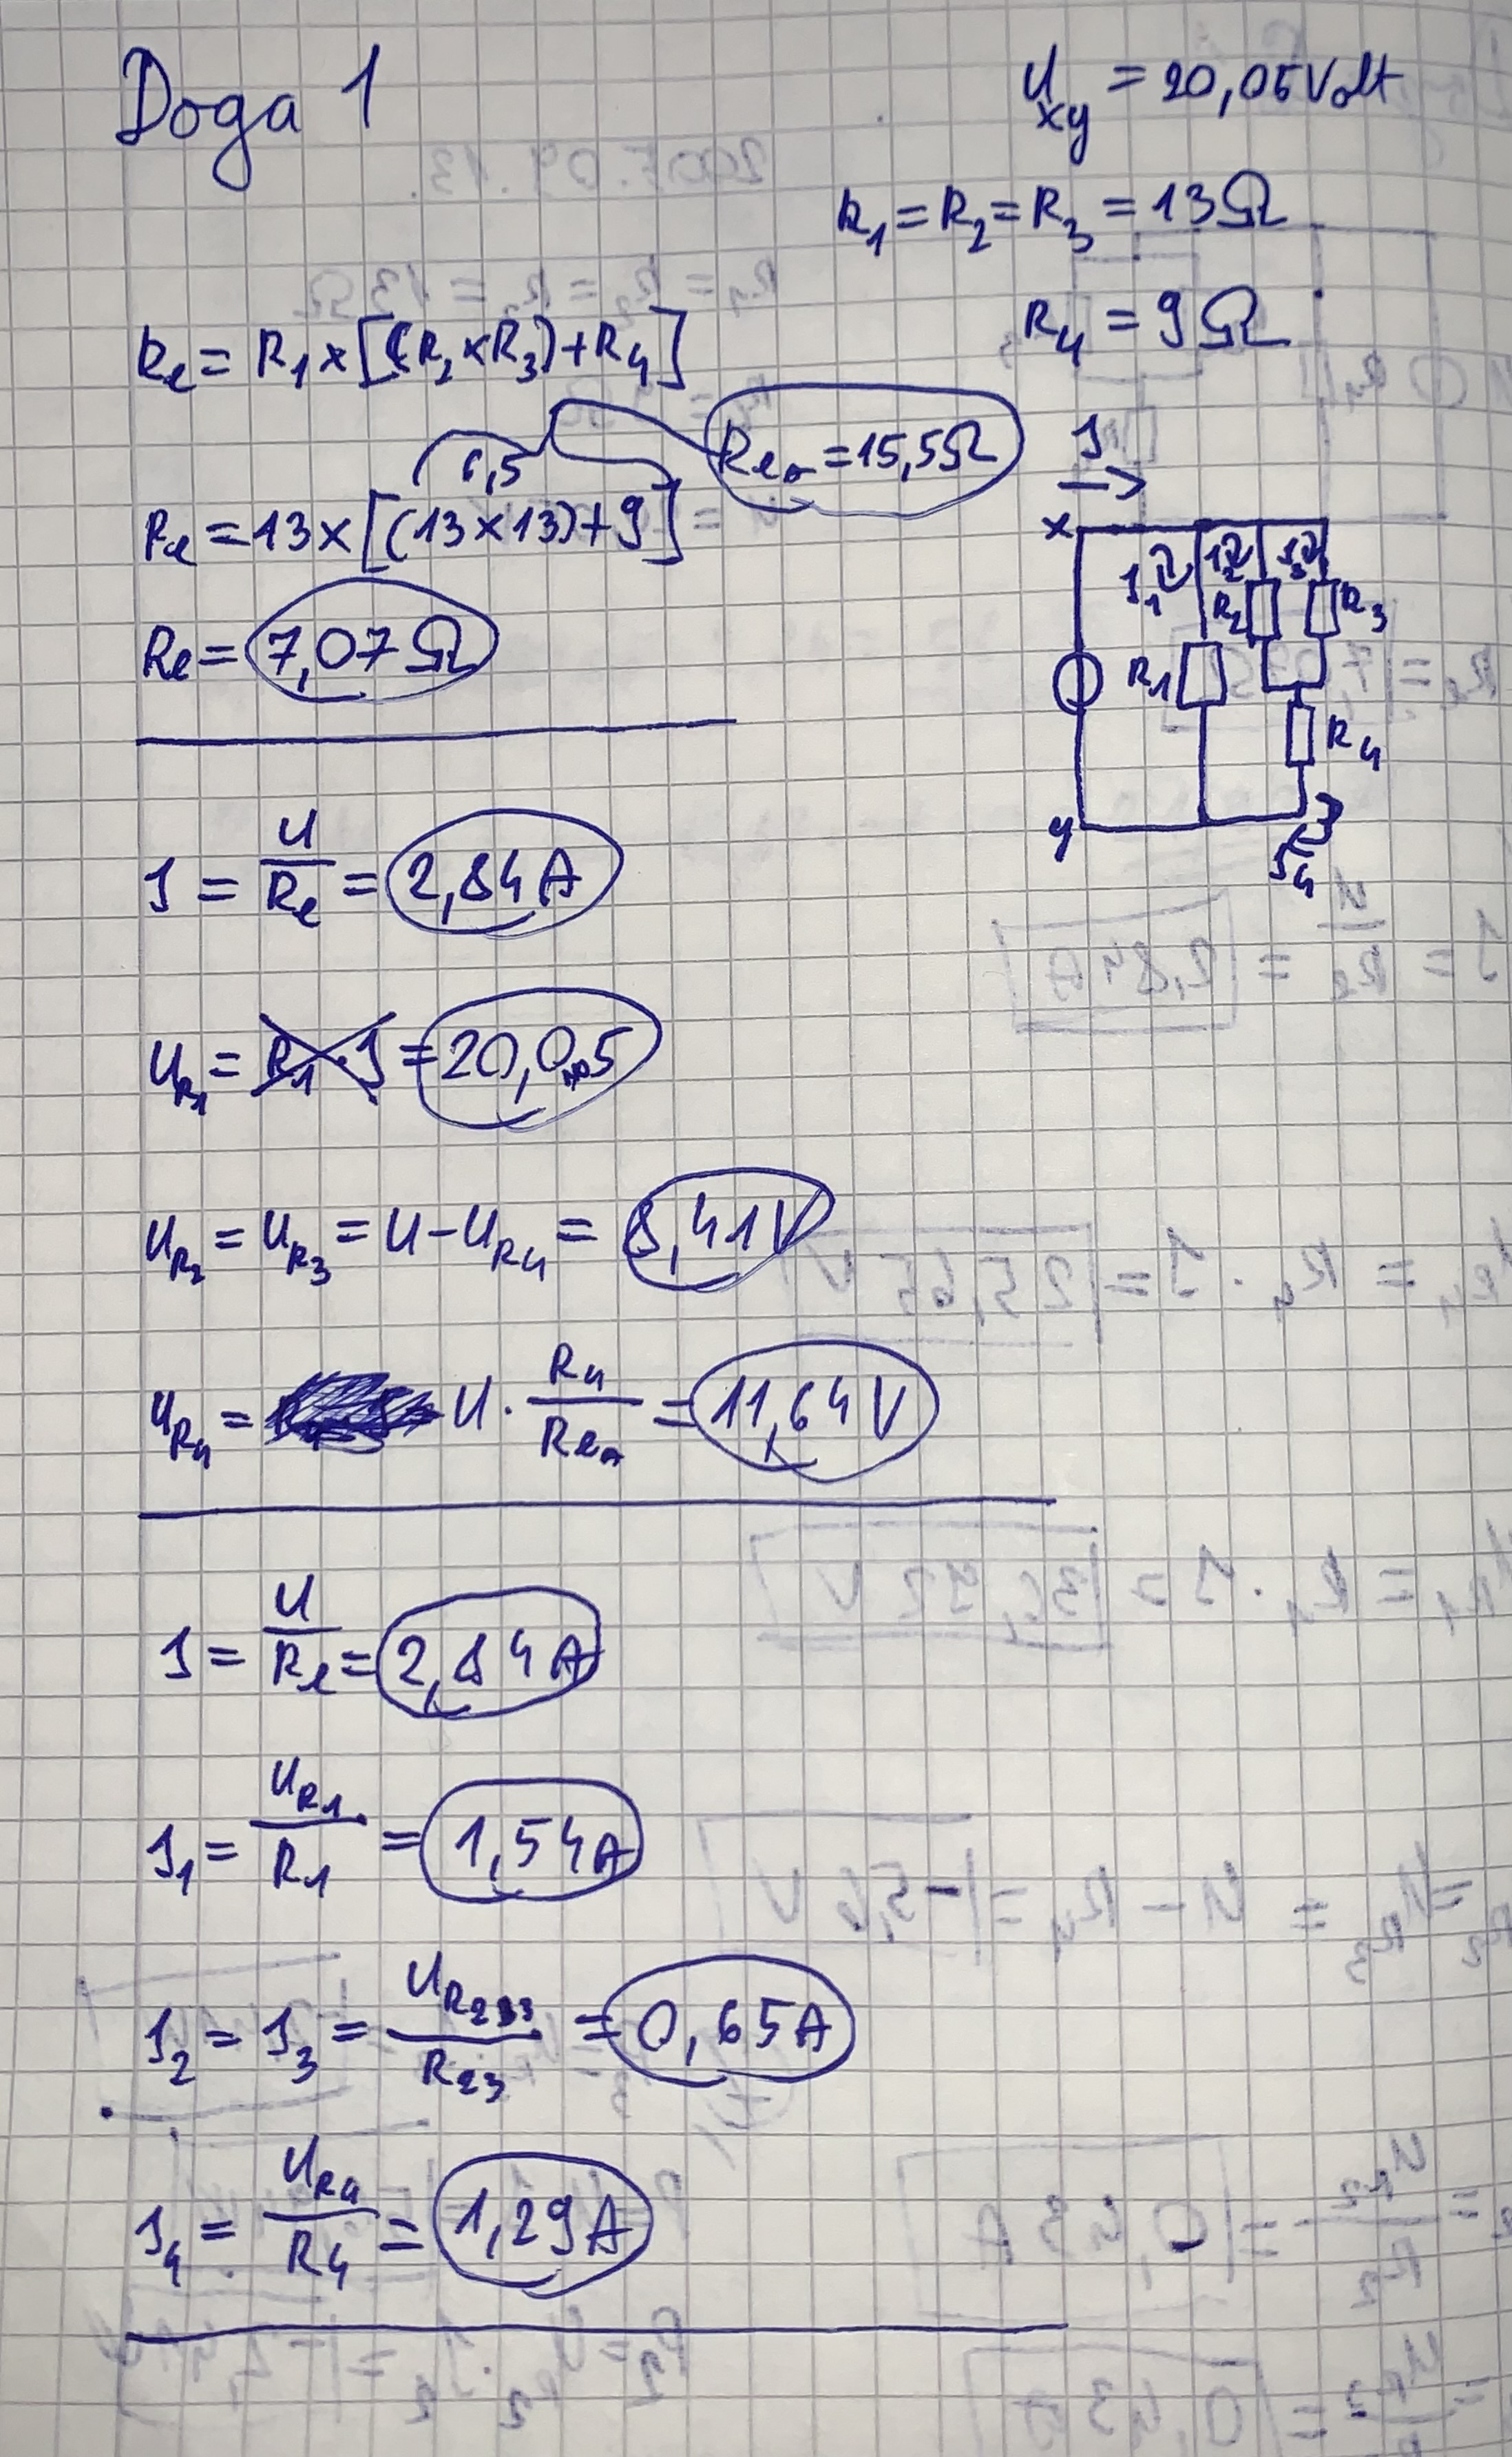 Doga 1
U_xy = 20,05 Volt
R_1 = R_2 = R_3 = 13 Ω
R_4 = 9 Ω
R_e = R_1 × [(R_2 × R_3) + R_4]
6,5
R_e = 13 × [(13 × 13) + 9]
= 15,5 Ω
R_e = 7,07 Ω
I
x
I_1
I_2
I_3
R_2
R_3
R_1
R_4
y
I_4
I = U / R_e = 2,84 A
U_R1 = R_1 · I = 20,05
U_R2 = U_R3 = U - U_R4 = 8,41 V
U_R4 = U · R_4 / = 11,64 V
I = U / R_e = 2,84 A
I_1 = U_R1 / R_1 = 1,54 A
I_2 = I_3 = / R_23 = 0,65 A
I_4 = U_R4 / R_4 = 1,29 A